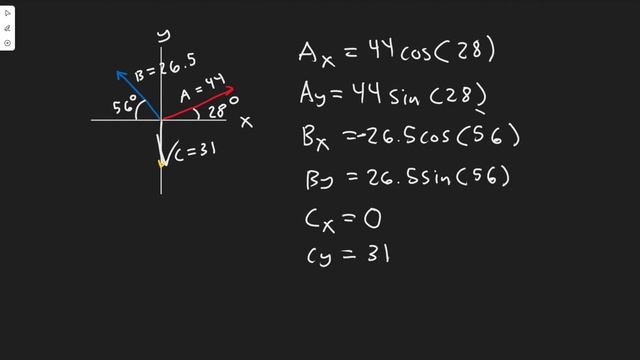 y
B = 26.5
A = 44
56°
28°
x
C = 31
Ax = 44cos(28)
Ay = 44sin(28)
Bx = -26.5cos(56)
By = 26.5sin(56)
Cx = 0
Cy = 31